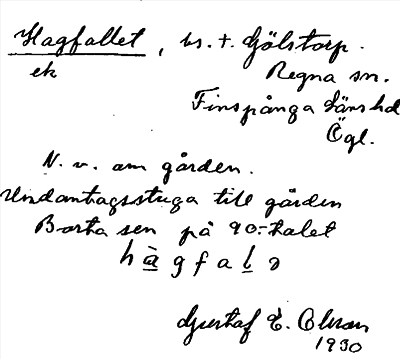 Hagfallet, bs. t. Gölstorp.
ek
Regna sn.
Finspånga läns hd
Ögl.
N. v. om gården.
Undantagsstuga till gården
Borta sen på 90-talet
hàgfalə
Gustaf E. Olsson
1930